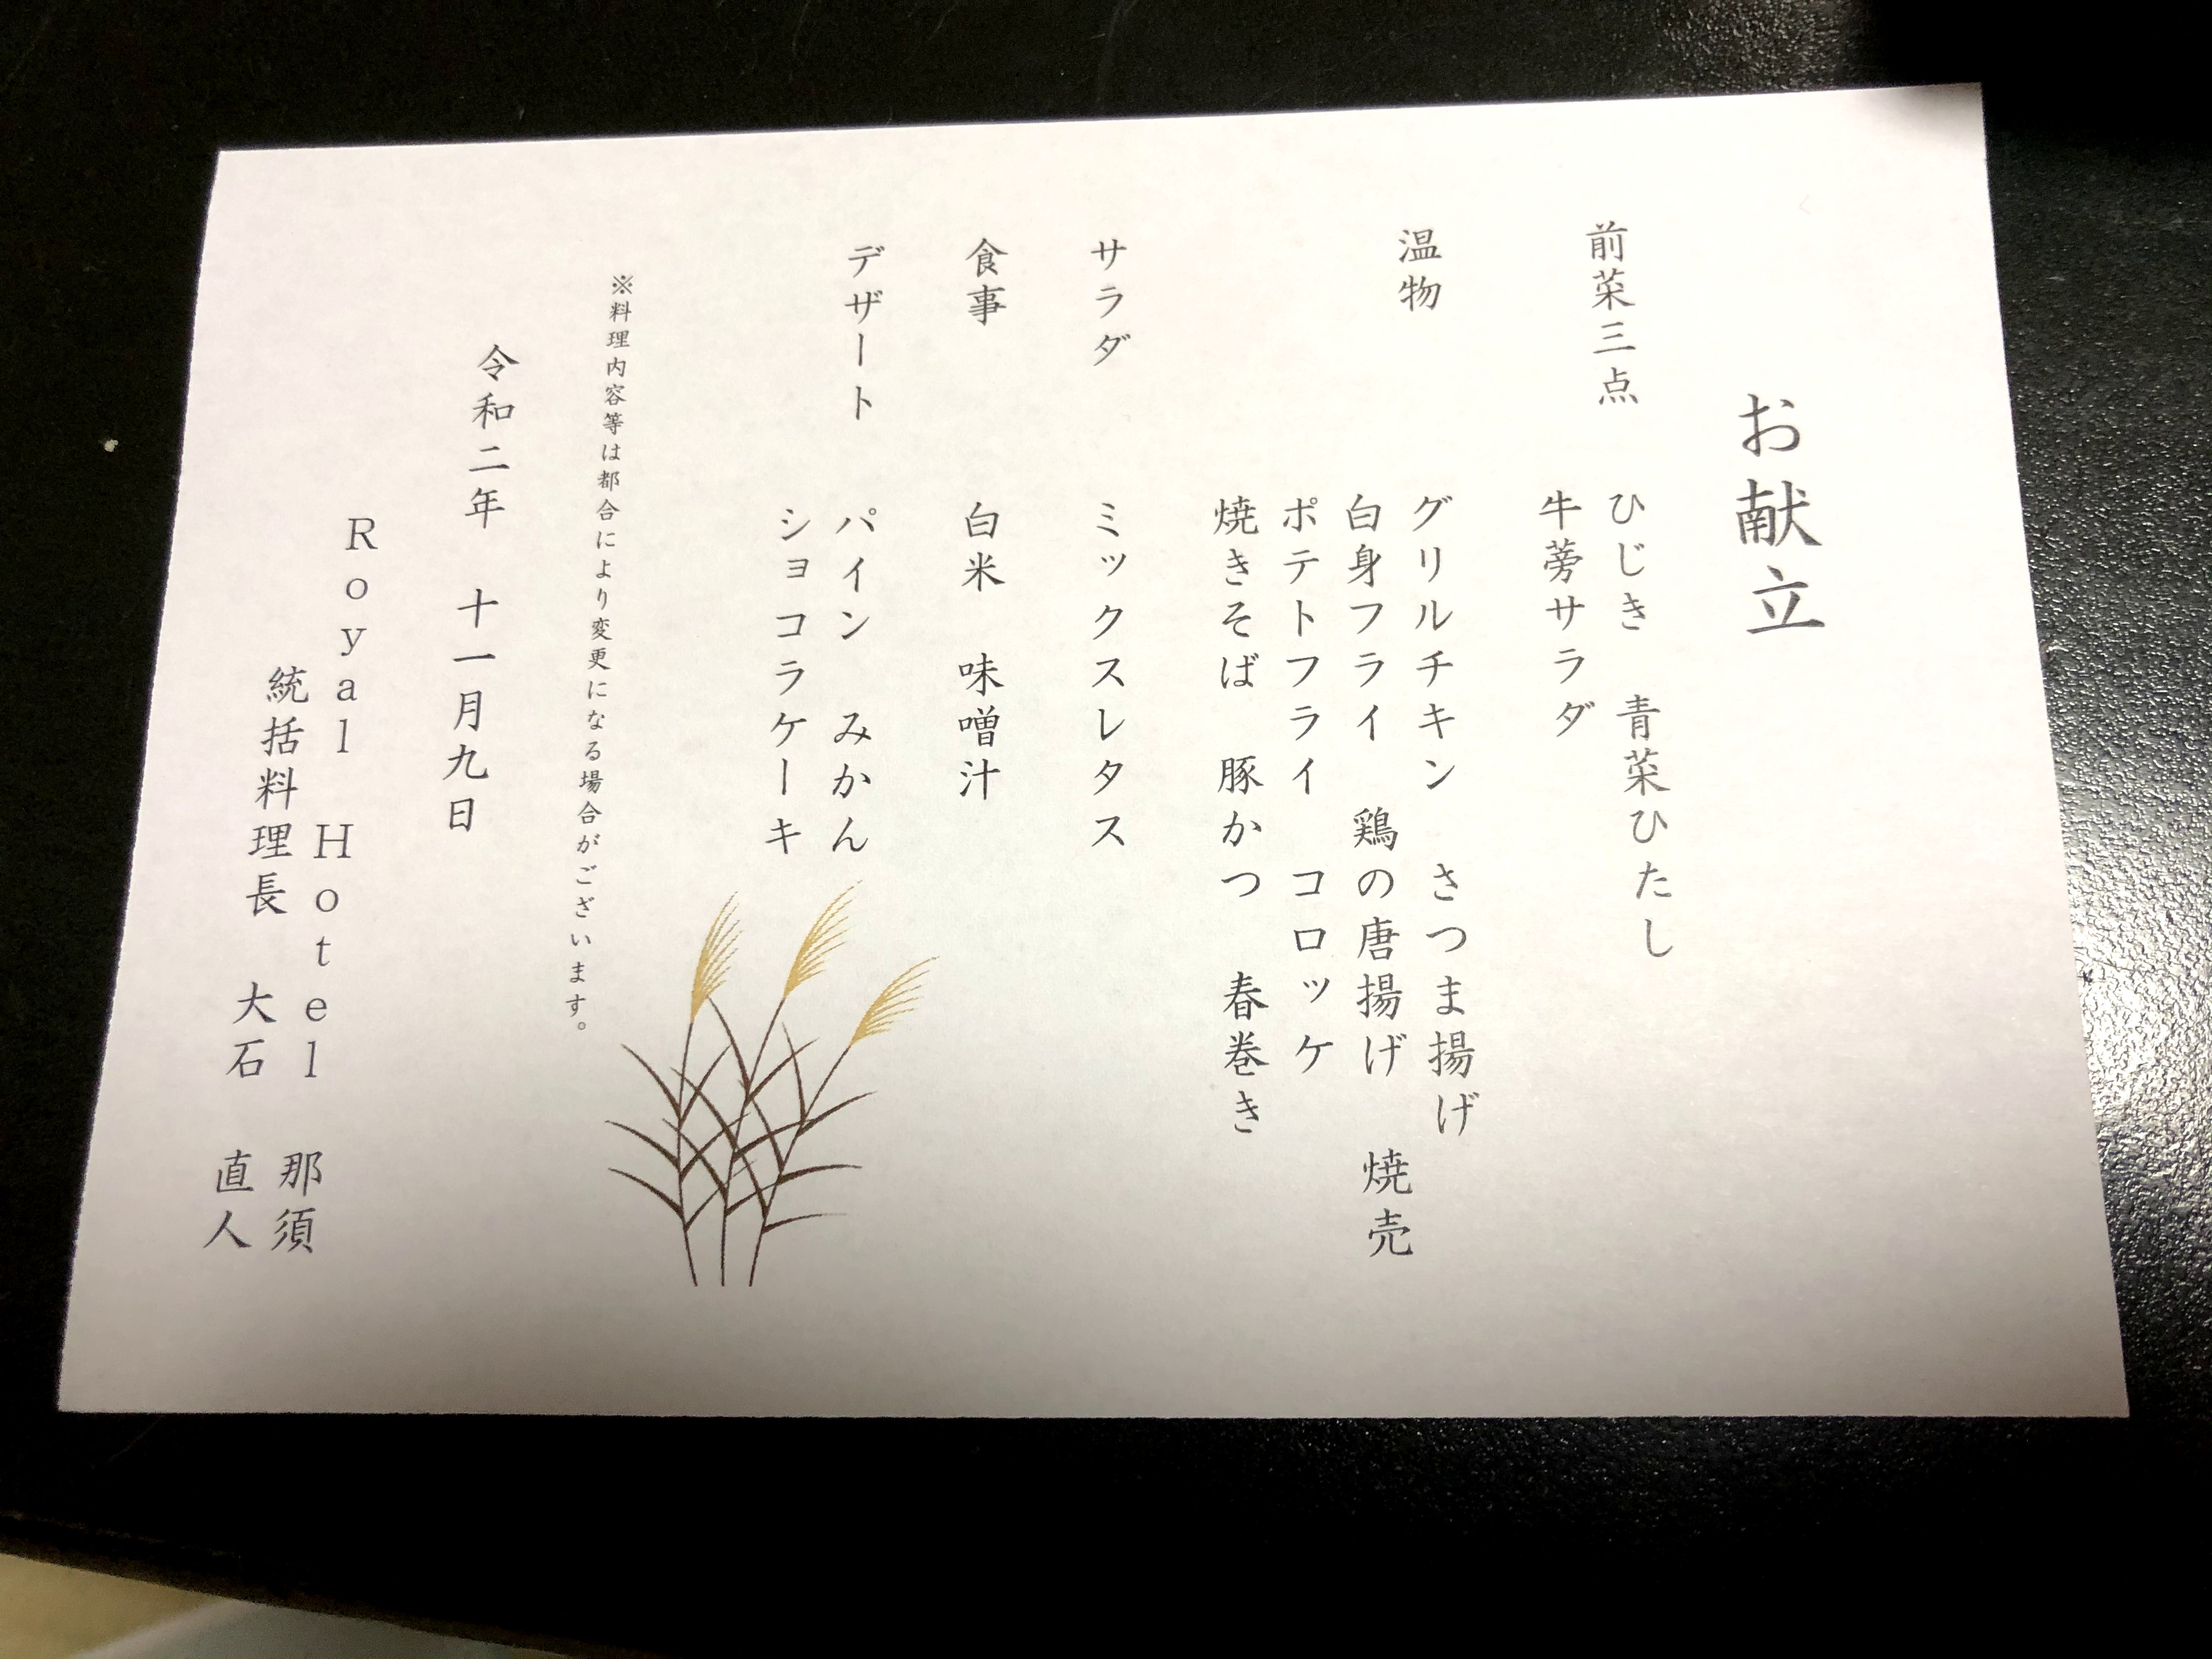 お献立
前菜三点　ひじき　青菜ひたし
牛蒡サラダ
温物　グリルチキン　さつま揚げ
白身フライ　鶏の唐揚げ　焼売
ポテトフライ　コロッケ
焼きそば　豚かつ　春巻き
サラダ　ミックスレタス
食事　白米　味噌汁
デザート　パイン　みかん
ショコラケーキ
※料理内容等は都合により変更になる場合がございます。
令和二年　十一月九日
Royal Hotel 那須
統括料理長　大石　直人